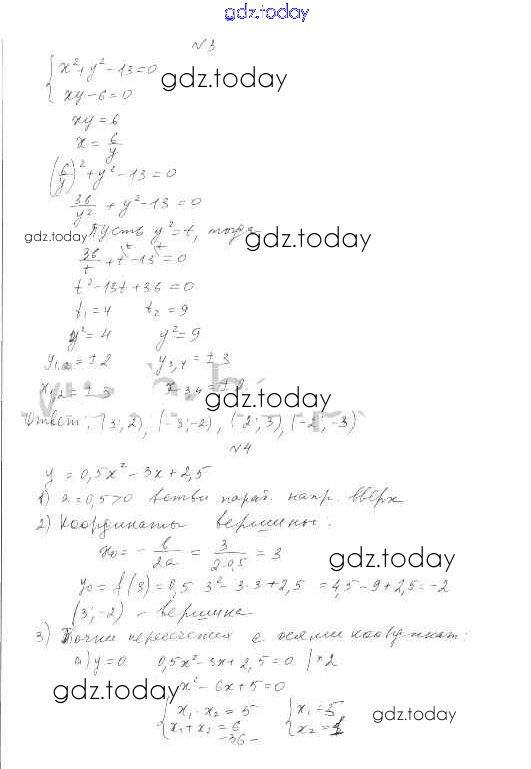 gdz.today
N3
{ x² + y² - 13 = 0
{ xy - 6 = 0
gdz.today
xy = 6
x = 6/y
(6/y)² + y² - 13 = 0
36/y² + y² - 13 = 0
Пусть y² = t, тогда
gdz.today gdz.today
36/t + t - 13 = 0
t² - 13t + 36 = 0
t₁ = 4 t₂ = 9
y² = 4 y² = 9
y₁,₂ = ±2 y₃,₄ = ±3
x₁,₂ = ±3 x₃,₄ = ±2
gdz.today
Ответ: (3; 2), (-3; -2), (2; 3), (-2; -3)
N4
y = 0,5x² - 3x + 2,5
1) a = 0,5 > 0 ветви параб. напр. вверх
2) Координаты вершины:
x₀ = - b/2a = 3/2·0,5 = 3
gdz.today
y₀ = f(3) = 0,5 · 3² - 3·3 + 2,5 = 4,5 - 9 + 2,5 = -2
(3; -2) - вершина
3) Точки пересечения с осями координат:
а) y = 0 0,5x² - 3x + 2,5 = 0 | ·2
gdz.today
x² - 6x + 5 = 0
{ x₁ · x₂ = 5 { x₁ = 5
{ x₁ + x₂ = 6 { x₂ = 1
gdz.today
-36-